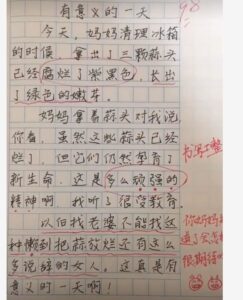 有意义的一天
98
今天,妈妈清理冰箱
的时候,拿出了三颗蒜头
已经腐烂了紫黑色,长出
了绿色的嫩芽。
妈妈拿着蒜头对我说
你看,虽然这些蒜头已经
烂了,但它们仍然孕育了
新生命,这是多么顽强的
精神啊,我听了很受教育。
以后找老婆不能找这
种懒到把蒜放烂还有这么
多说辞的女人,这真是有
意义的一天啊!
书写工整
你妈妈